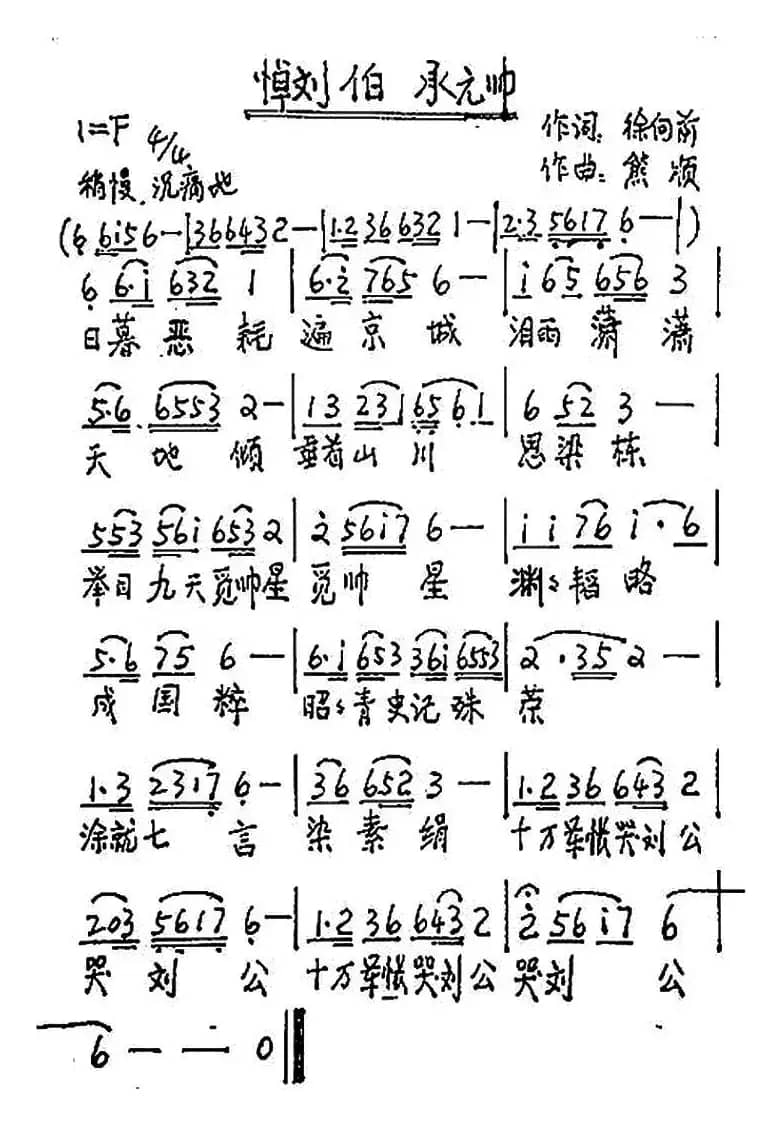 悼刘伯承元帅
1=F 4/4
作词：徐向前
稍慢 沉痛地
作曲：熊 颂
(6 6i56-|366432-|1·236632 1-|2·35617 6--|)
6 6·i 632 1|6·2 765 6-|i65 656 3|
日暮恶耗遍京城 泪雨潇潇
5·6 6553 2-|13 231 6561|6 52 3-
天地倾 垂首山川 思梁栋
553 56i 653 2|2 56i7 6-|ii 76 i·6
举目九天觅帅星 觅帅星 渊渊韬略
5·6 75 6-|6·i 653 36i 6553|2·35 2-
成国粹 昭昭青史记殊荣
1·3 2317 6-|36 652 3-|1·2 36 643 2
涂就七言染素绢 十万军帐哭刘公
203 5617 6-|1·2 36 643 2|2 56i7 6
哭刘公 十万军帐哭刘公 哭刘公
6--0